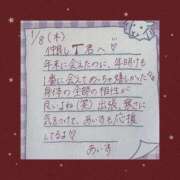 1/8(木)
仲良しT君へ♡
年末に会えたのに、年明けも
1番に会えてめっちゃ嬉しかった
身体の全部の相性が
良いよね(笑)出張、寒さに
気をつけて、あいすも応援
してるよ♡
あいす